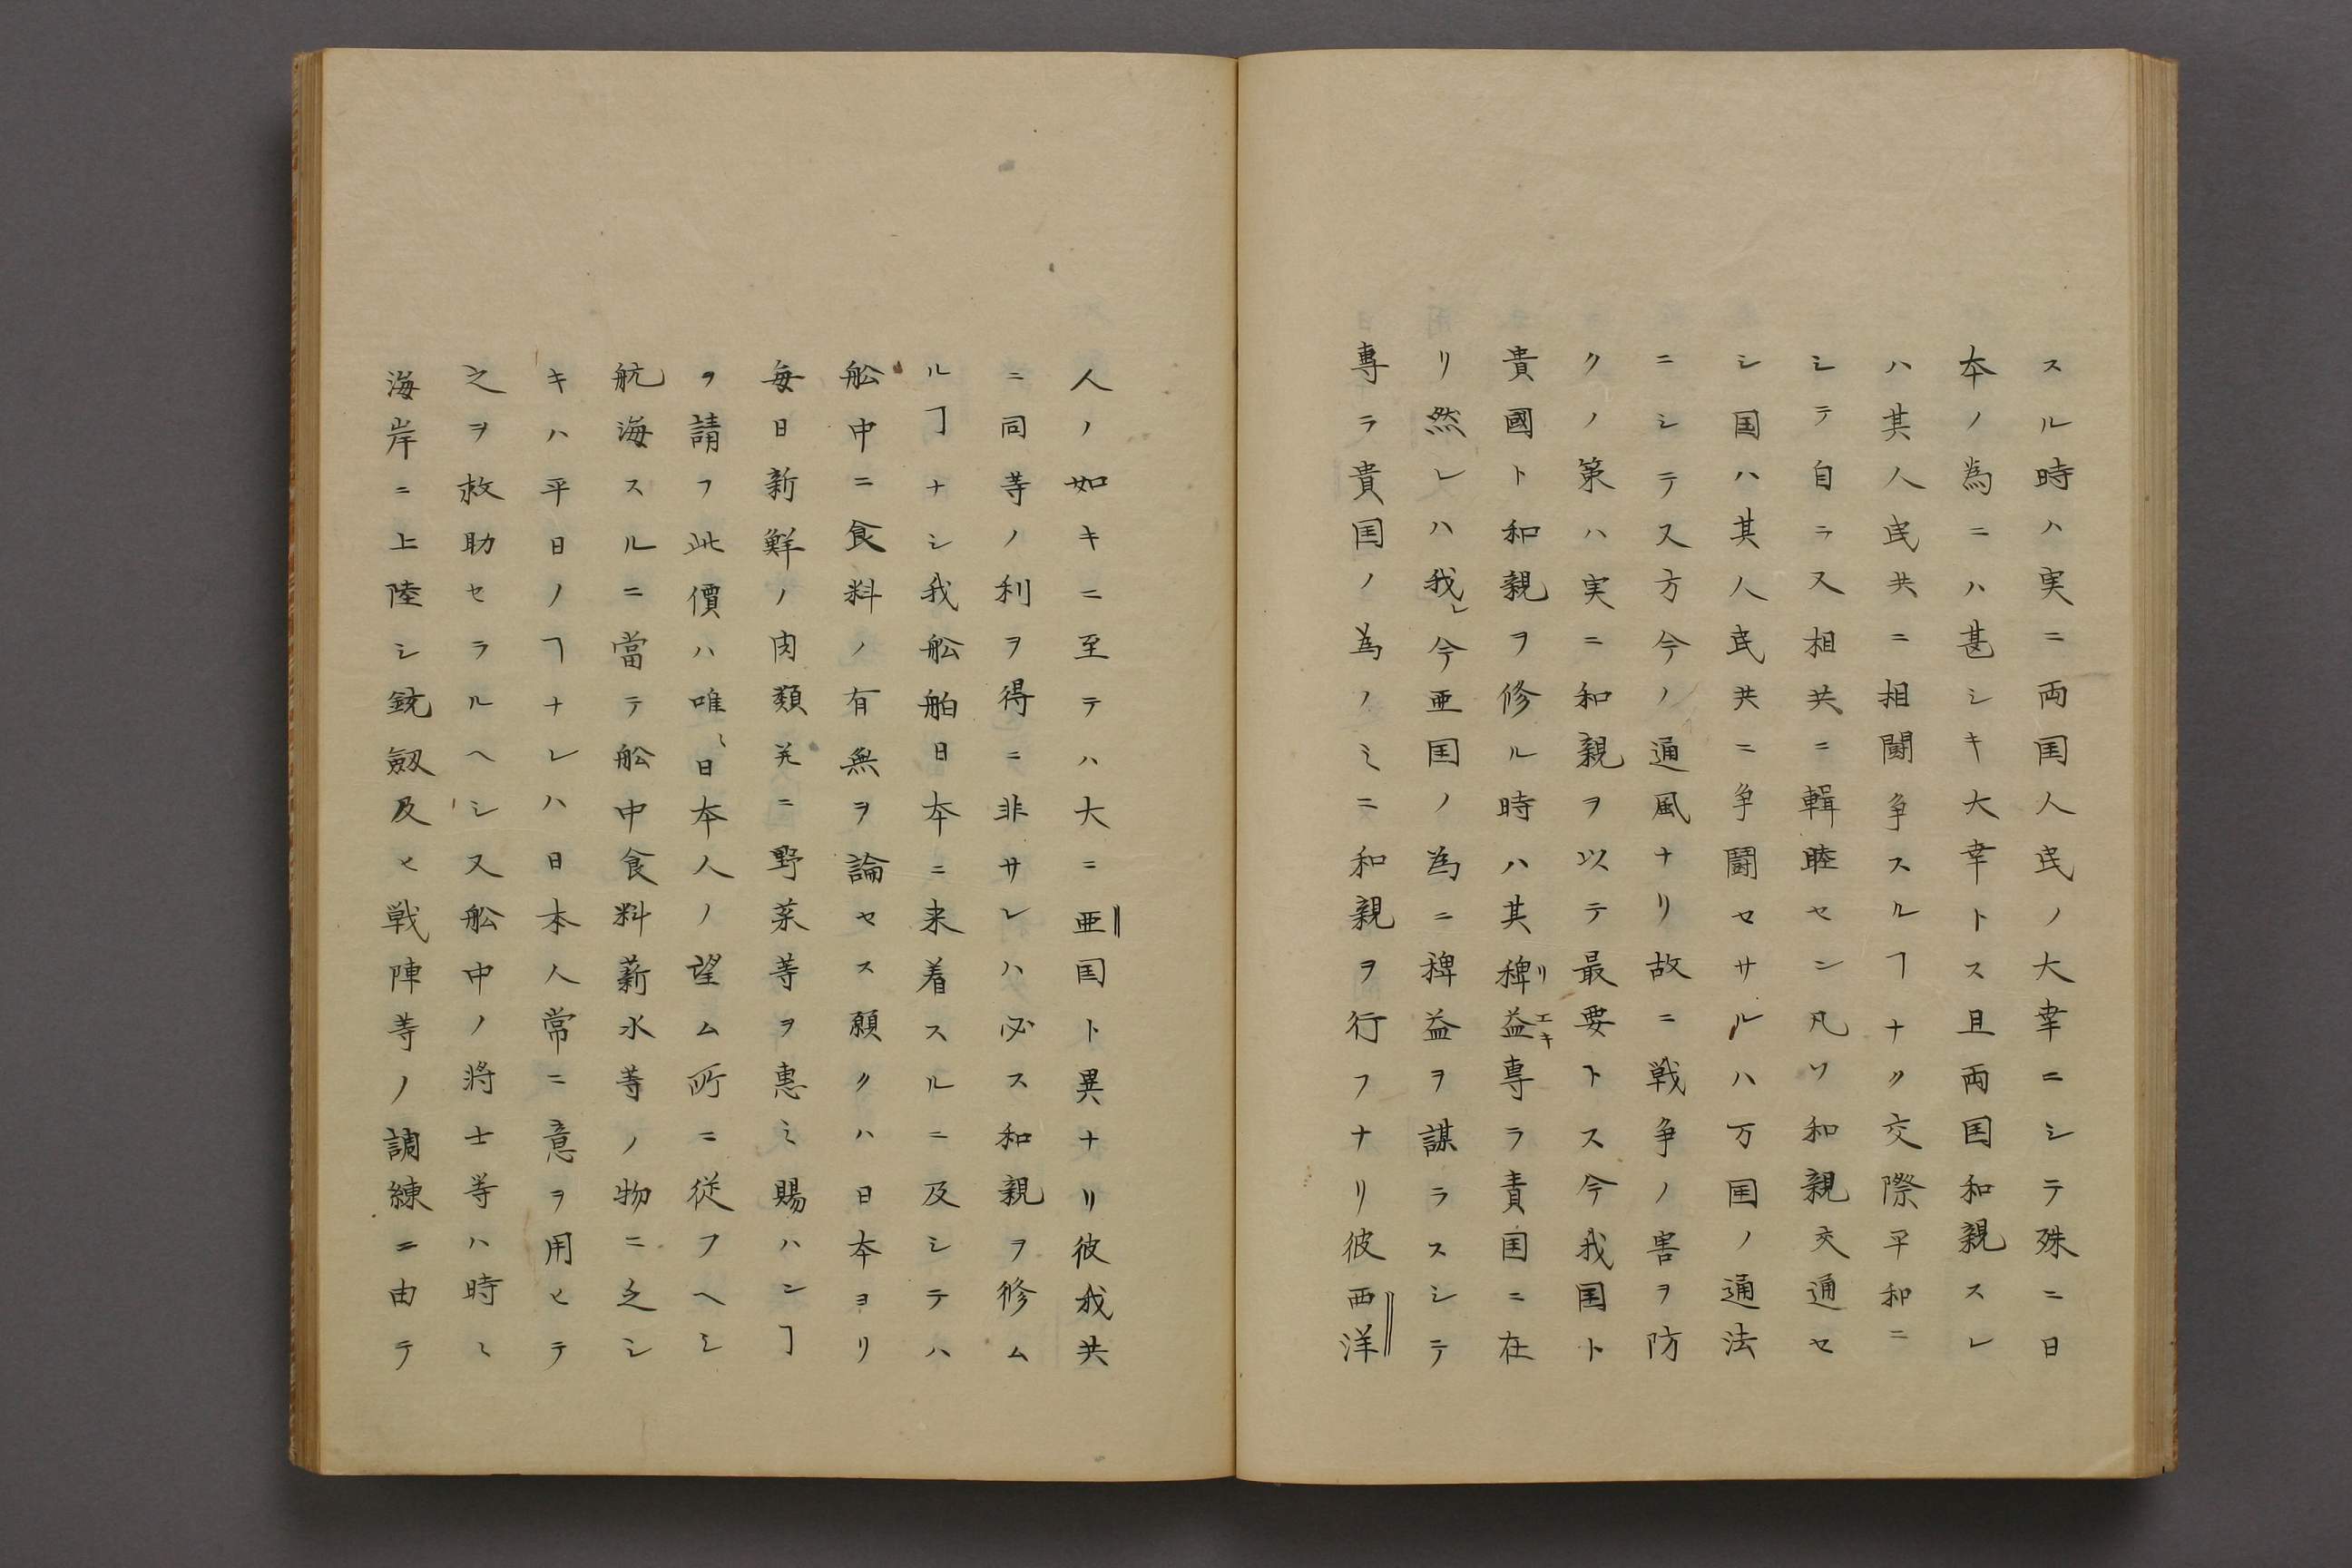 スル時ハ実ニ両国人民ノ大幸ニシテ殊ニ日
本ノ為ニハ甚シキ大幸トス且両国和親スレ
ハ其人民共ニ相闘争スルヿナク交際平和ニ
シテ自ラ又相共ニ輯睦セン凡ソ和親交通セ
シ国ハ其人民共ニ争闘セサルハ万国ノ通法
ニシテ又方今ノ通風ナリ故ニ戦争ノ害ヲ防
クノ策ハ実ニ和親ヲ以テ最要トス今我国ト
貴國ト和親ヲ修ル時ハ其稗益専ラ責国ニ在
リ然レハ我レ今亜国ノ為ニ稗益ヲ謀ラスシテ
専ラ貴国ノ為ノミニ和親ヲ行フナリ彼西洋
人ノ如キニ至テハ大ニ亜国ト異ナリ彼我共
ニ同等ノ利ヲ得ニ非サレハ必ス和親ヲ修ム
ルヿナシ我舩舶日本ニ来着スルニ及シテハ
舩中ニ食料ノ有無ヲ論セス願クハ日本ヨリ
毎日新鮮ノ肉類并ニ野菜等ヲ恵ミ賜ハンヿ
ヲ請フ此價ハ唯〻日本人ノ望ム所ニ従フヘシ
航海スルニ當テ舩中食料薪水等ノ物ニ乏シ
キハ平日ノヿナレハ日本人常ニ意ヲ用ヒテ
之ヲ救助セラルヘシ又舩中ノ将士等ハ時〻
海岸ニ上陸シ銃劔及ヒ戦陣等ノ調練ニ由テ